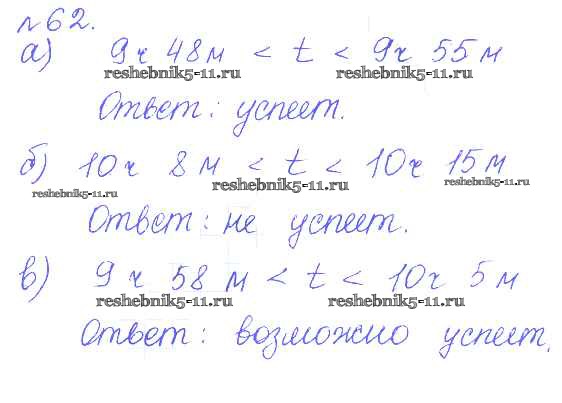 №62.
а) 9ч 48м < t < 9ч 55м
reshebnik5-11.ru reshebnik5-11.ru
Ответ: успеет.
б) 10ч 8м < t < 10ч 15м
reshebnik5-11.ru reshebnik5-11.ru reshebnik5-11.ru
Ответ: не успеет.
в) 9ч 58м < t < 10ч 5м
reshebnik5-11.ru reshebnik5-11.ru
Ответ: возможно успеет.